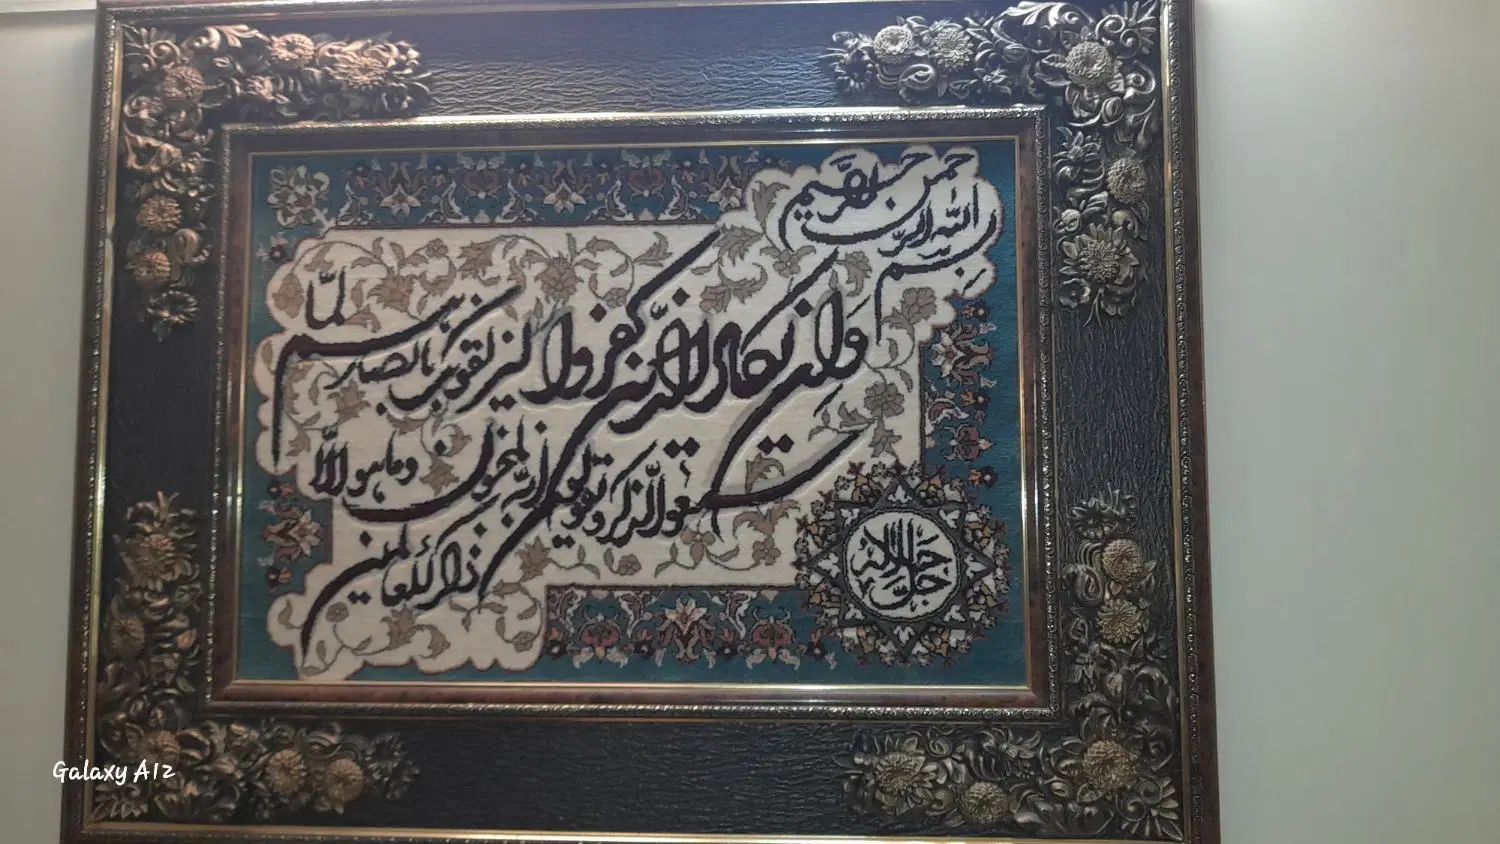 بسم الله الرحمن الرحيم
وان يكاد الذين كفروا ليزلقونك بابصارهم لما
سمعوا الذكر و يقولون انه لمجنون وما هو الا
ذكر للعالمين
جل جلاله
Galaxy A12